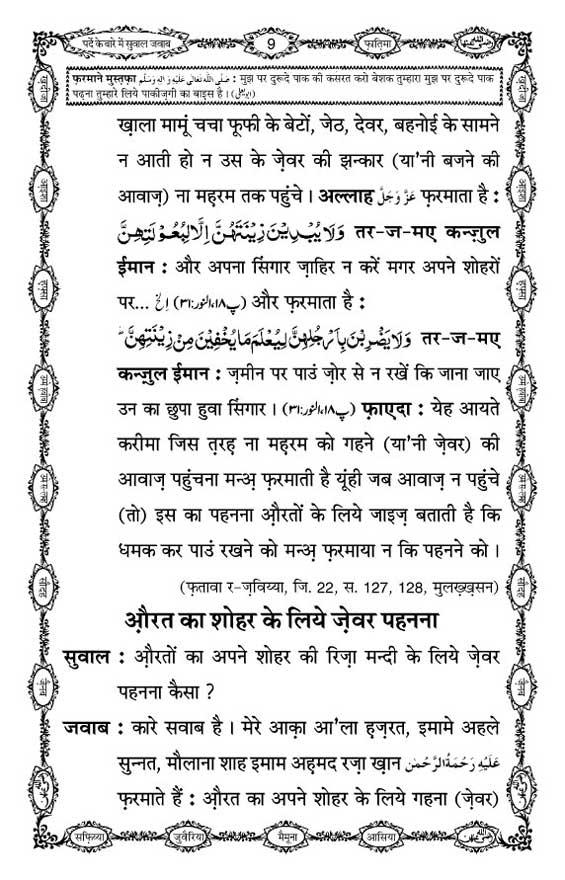 पर्दे के बारे में सुवाल जवाब
9
फ़ातिमा
फ़रमाने मुस्तफ़ा صَلَّى اللهُ تَعَالٰى عَلَيْهِ وَاٰلِهٖ وَسَلَّم : मुझ पर दुरूदे पाक की कसरत करो बेशक तुम्हारा मुझ पर दुरूदे पाक
पढ़ना तुम्हारे लिये पाकीज़गी का बाइस है। (ابویعلیٰ)
ख़ाला मामूं चचा फूफी के बेटों, जेठ, देवर, बहनोई के सामने
न आती हो न उस के ज़ेवर की झन्कार (या'नी बजने की
आवाज़) ना महरम तक पहुंचे। अल्लाह عَزَّوَجَلَّ फ़रमाता है :
وَلَا يُبْدِيْنَ زِيْنَتَهُنَّ اِلَّا لِبُعُوْلَتِهِنَّ तर-ज-मए कन्ज़ुल
ईमान : और अपना सिंगार ज़ाहिर न करें मगर अपने शोहरों
पर... الخ (پ١٨،النور:٣١) और फ़रमाता है :
وَلَا يَضْرِبْنَ بِاَرْجُلِهِنَّ لِيُعْلَمَ مَا يُخْفِيْنَ مِنْ زِيْنَتِهِنَّ ؕ तर-ज-मए
कन्ज़ुल ईमान : ज़मीन पर पाउं ज़ोर से न रखें कि जाना जाए
उन का छुपा हुवा सिंगार। (پ١٨،النور:٣١) फ़ाएदा : येह आयते
करीमा जिस त़रह़ ना महरम को गहने (या'नी ज़ेवर) की
आवाज़ पहुंचना मन्अ़ फ़रमाती है यूंही जब आवाज़ न पहुंचे
(तो) इस का पहनना औ़रतों के लिये जाइज़ बताती है कि
धमक कर पाउं रखने को मन्अ़ फ़रमाया न कि पहनने को।
(फ़तावा र-ज़विय्या, जि. 22, स. 127, 128, मुलख़्ख़सन)
औ़रत का शोहर के लिये ज़ेवर पहनना
सुवाल : औ़रतों का अपने शोहर की रिज़ा मन्दी के लिये ज़ेवर
पहनना कैसा ?
जवाब : कारे सवाब है। मेरे आक़ा आ'ला ह़ज़रत, इमामे अहले
सुन्नत, मौलाना शाह इमाम अह़मद रज़ा ख़ान عَلَيْهِ رَحْمَةُ الرَّحْمٰن
फ़रमाते हैं : औ़रत का अपने शोहर के लिये गहना (ज़ेवर)
सफ़िय्या
जुवैरिया
मैमूना
आसिया